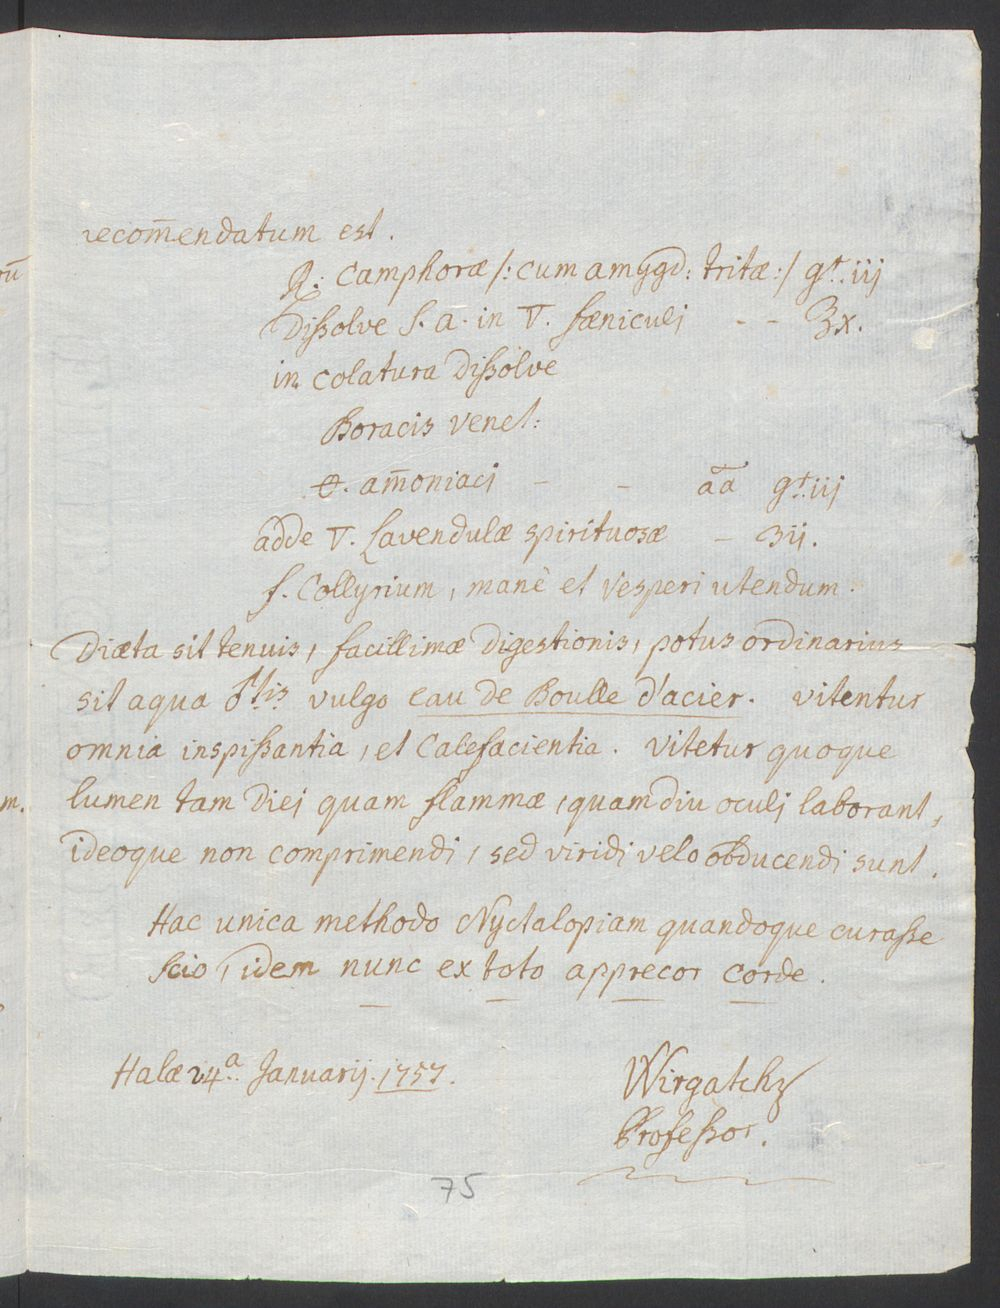 recom̄endatum est.
℞. Camphoræ /: cum amygd: tritæ :/ gr. iij
Dißolve S. a. in ∇. fæniculj - - ℥x.
in colatura Dißolve
Boracis venet:
🜔. am̄oniacj - - āā gr. iij
adde ∇. Lavendulæ spirituosæ - ʒij.
f. Collyrium, manè et vesperi utendum.
Diæta sit tenuis, facillimæ Digestionis, potus ordinarius
sit aqua ♂tis vulgo eau de Boulle d'acier. vitentur
omnia inspißantia, et Calefacientia. vitetur quoque
lumen tam Diej quam flammæ, quamdiu oculj laborant,
ideoque non comprimendi, sed viridi velo obducendi sunt.
Hac unica methodo Nyctalopiam quandoque curaße
scio, idem nunc ex toto apprecor corde.
Halæ 24a Januarij. 1757.
Wirgatchz
Profeßor.
75
m.